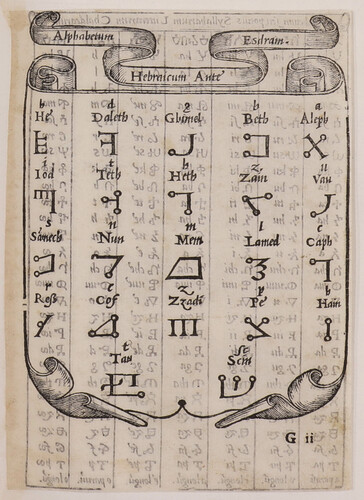 Alphabetum Esdram.
Hebreicum Ante
h d g b a
He Daleth Ghimel Beth Aleph
i t h z u
Iod Teth Heth Zain Vau
s n m l c
Samech Nun Mem Lamed Caph
r c z p h
Ross Cof Zzadi Pe Hain
t sc
Tau Scin
G ii